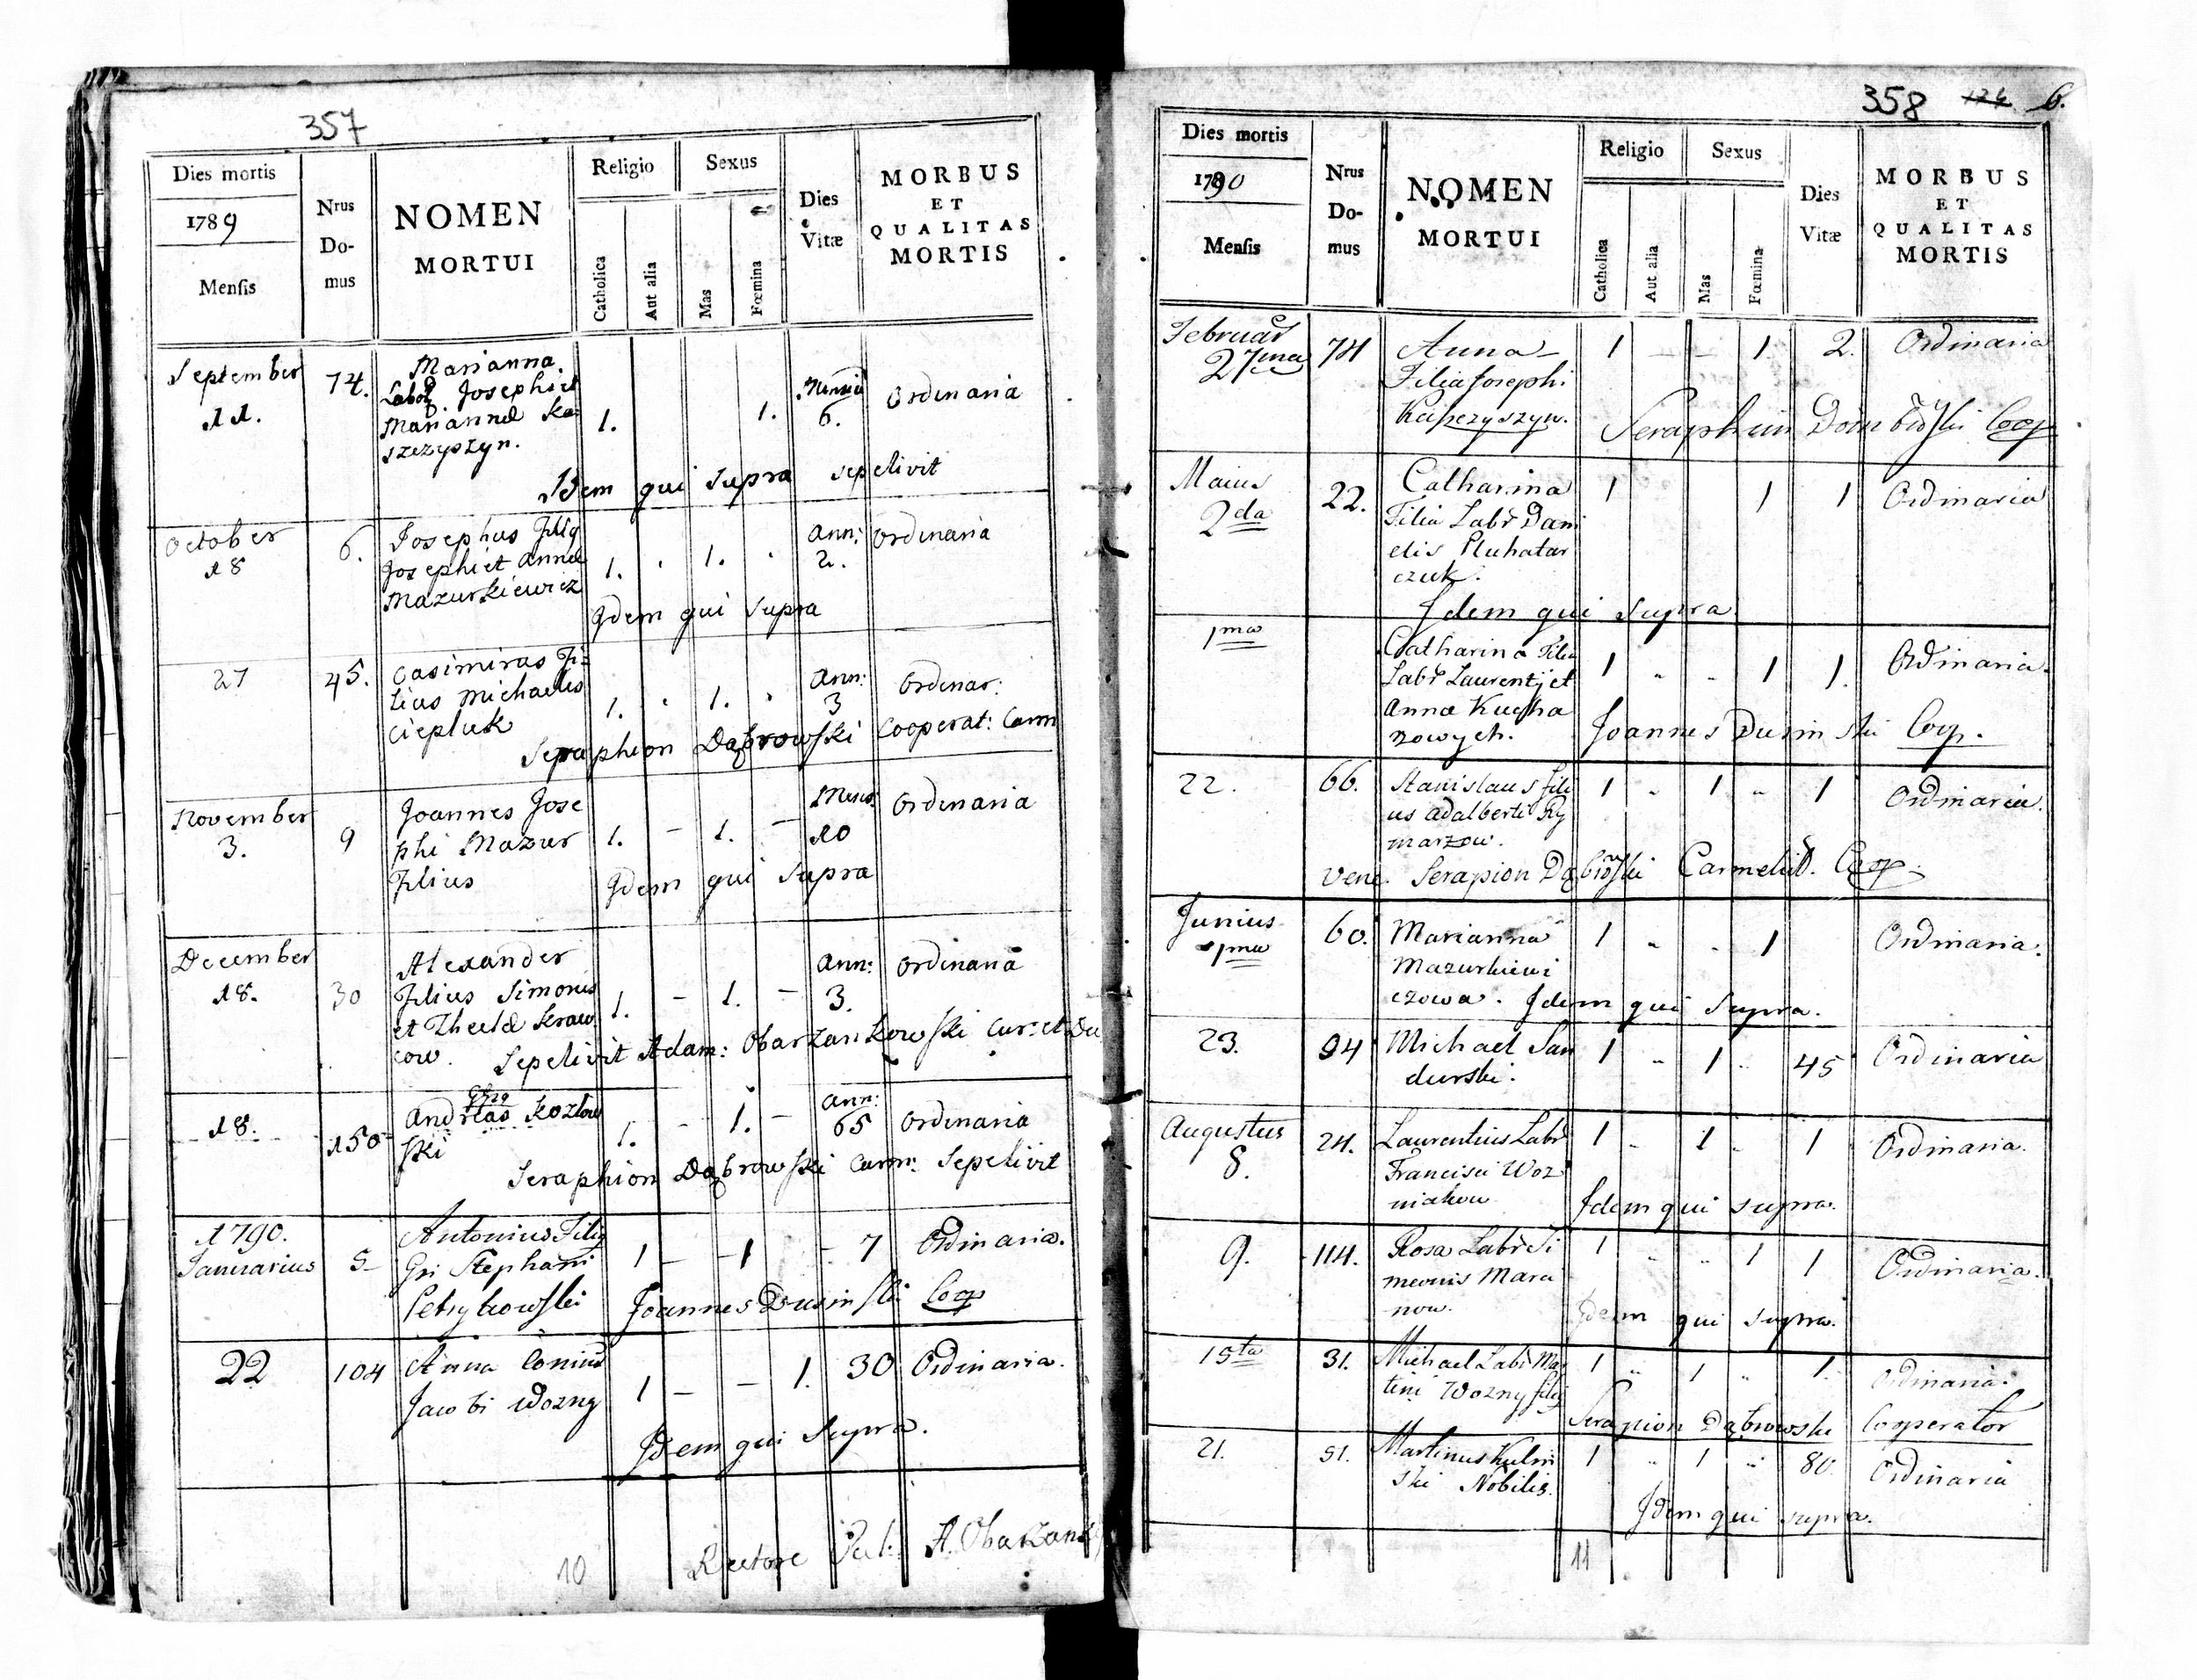 357
Dies mortis
1789
Mensis
Nrus
Do-
mus
NOMEN
MORTUI
Religio
Catholica
Aut alia
Sexus
Mas
Fœmina
Dies
Vitæ
MORBUS
ET
QUALITAS
MORTIS
September 74. Marianna
11. Josephi et
Mariannæ Ka 1. 1. 6. Ordinaria
szczyszyn.
Idem qui supra sepelivit
October 6. Josephus Filig Ann: Ordinaria
18 Josephi et Annæ 1. 1. 2.
Mazurkiewicz
Idem qui supra
27 45. Casimirus Fi= Ann: Ordinar:
lius Michaelis 1. 1. 3
Ciepluk
Seraphion Dąbrowski Cooperat: Carm
November 9 Joannes Jose Mens: Ordinaria
3. phi Mazur 1. – 1. – 10
Filius
Idem qui supra
December 30 Alexander Ann: Ordinaria
18. Filius Simonis 1. – 1. – 3.
et
cow. Sepelivit Adam: Obarzankowski Cur: et
18. 150 Andreas Kozlow 1. – 1. – Ann: 65 Ordinaria
ski
Seraphion Dąbrowski Carm: Sepelivit
1790.
Januarius 5 Antonius Filig 1 – 1 – 7 Ordinaria.
Stephani
Joannes Dusinski Coop
22 104 Anna 1 – – 1. 30 Ordinaria.
Jacobi Wozny
Idem qui supra.
10
Rectore A. Obarzank
358 124 6.
Dies mortis
1790
Mensis
Nrus
Do-
mus
NOMEN
MORTUI
Religio
Catholica
Aut alia
Sexus
Mas
Fœmina
Dies
Vitæ
MORBUS
ET
QUALITAS
MORTIS
Februar 74 Anna 1 – – 1. 2. Ordinaria
27ma Filia Josephi
Kaszczyszyn.
Coop
Maius 22. Catharina 1 1 1 Ordinaria
2da Filia Labr Dani
elis Pluhatar
czuk.
Idem qui supra
1ma Catharina Filia 1 1 1. Ordinaria.
Labr Laurentj et
Annæ
nowych. Joannes Dusinski Coop.
22. 66. Stanislaus fili 1 1 1 Ordinaria.
us Adalberti Ry
marzow.
Vene. Serapion Dąbrowski Carmelit. Coop.
Junius 60. Marianna 1 1 Ordinaria.
1ma Mazurkiewi
czowa. Idem qui supra.
23. 94 Michael San 1 1 45 Ordinaria
durski.
Augustus 24. Laurentius Labr 1 1 1 Ordinaria.
8. Francisci Woz
niakow Idem qui supra.
9. 114. Rosa Labr Si 1 1 1 Ordinaria.
meonis Mara
now. Idem qui supra.
15ta 31. Michael Labr Mar 1 1 1. Ordinaria.
tini Wozny filig
Serapion Dąbrowski Cooperator
21. 51. Martinus Kulin 1 1 80. Ordinaria
ski Nobilis.
Idem qui supra.
11